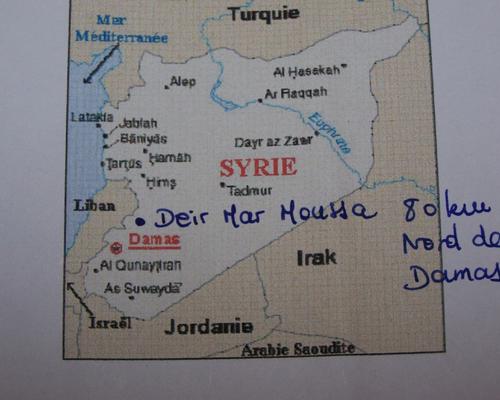 Turquie
Mer
Méditerranée
Alep
Al Hasakah
Ar Raqqah
Latakia
Jablah
Bāniyās
Euphrate
Dayr az Zawr
Hamāh
Tartūs
SYRIE
Hims
Tadmur
Liban
Deir Mar Moussa 80 km
Nord de
Damas
Damas
Al Qunayţirah
Irak
As Suwaydā'
Israël
Jordanie
Arabie Saoudite